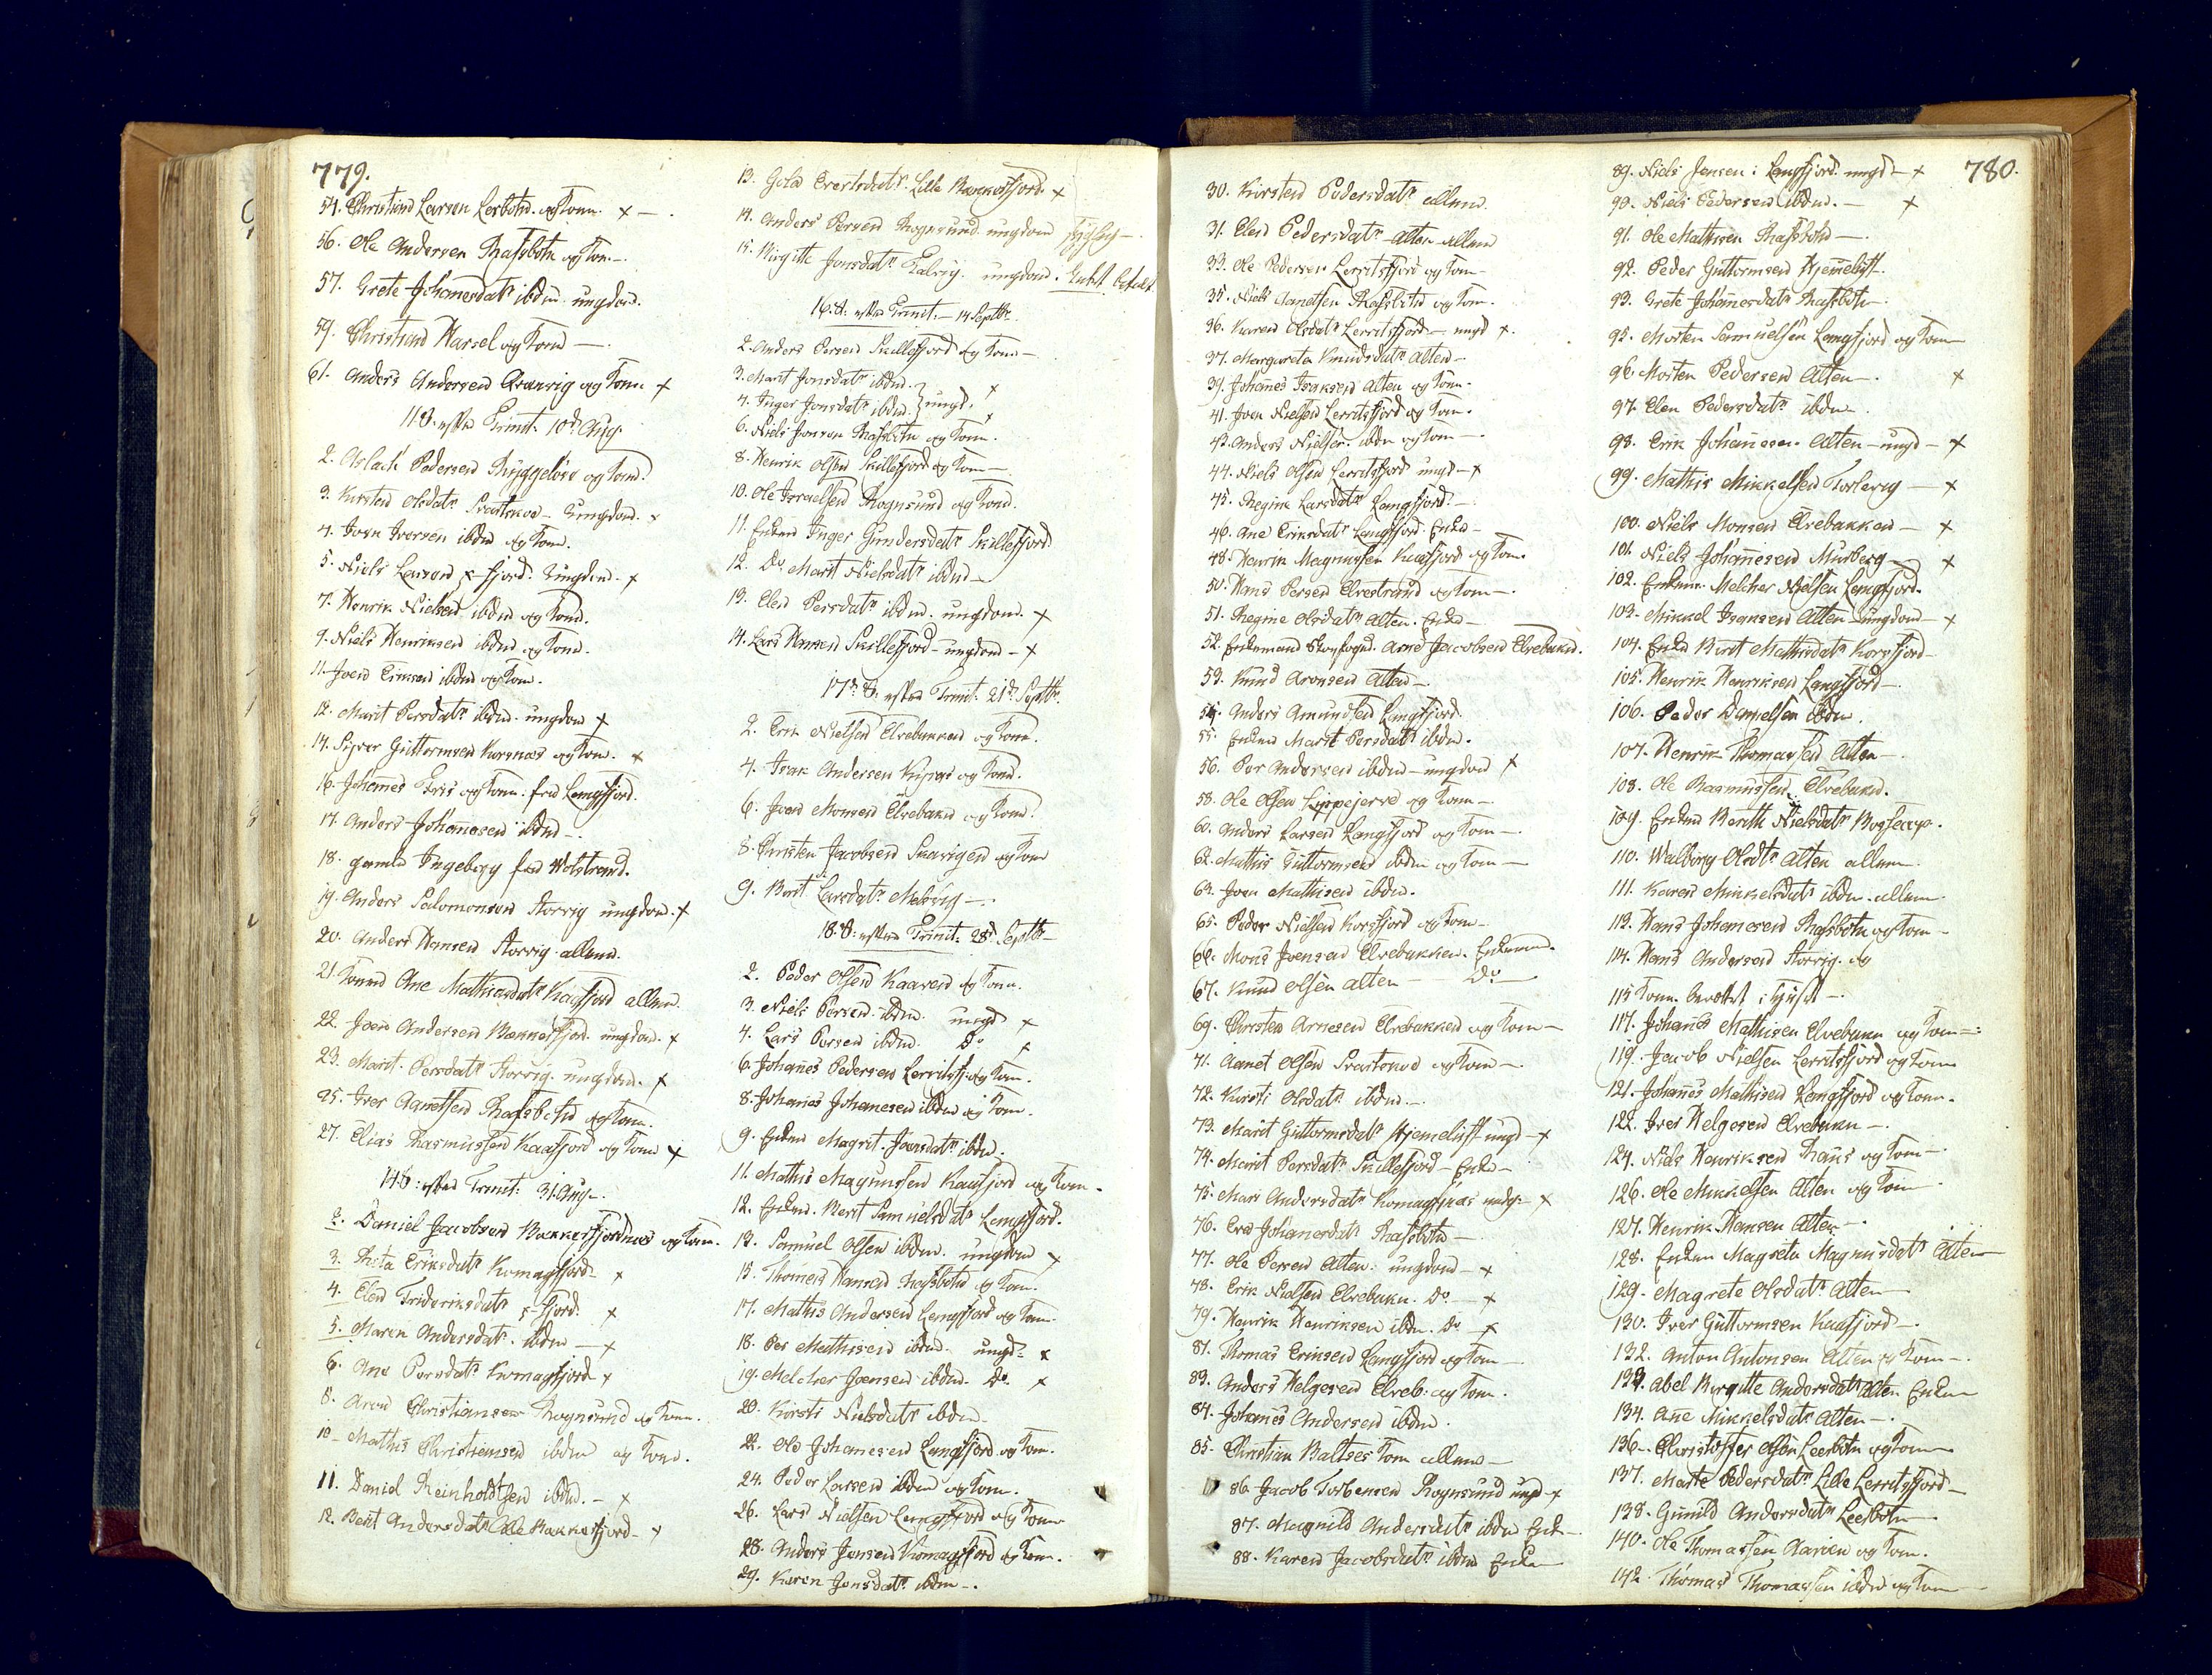 779.
54. Christian Larsen Lerbotn. og Kone. x —.
56. Ole Andersen Rafsbotn og Kon.—
57. Grete Johanesdatr ibdm ungdom.
59. Christian Hansel og Kone —
61. Anders Andersen Qvenvig og Kone x
11 S. efter Trinit. 10d Aug.
2. Aslach Pedersen og Kone.
3. Kirsten Olsdatr Svartskod – Ungdom. x
4. Iver Iversen ibdm og Kone.
5. Niels Larsen x-fjord. Ungdom. x
7. Henrik Nielsen ibdm og Kone.
9. Niels Henriksen ibdm og Kone.
11. Joen Eriksen ibdm og Kone.
12. Marit Persdatr ibdm. ungdom x
14. Siver Guttormsen Korsnæs og Kone. x
16. Johannes Friis og Kone. fra Langfjord.
17. Anders Johannesen ibdm —.
18. gamle Ingeborg fra Wolstrand.
19. Anders Salomonsen Storvig ungdom. x
20. Anders Hansen Storvig allene.
21. Konen Ane Mathiasdatr Kaafjord allene.
22. Joen Andersen Bekkerfjord. ungdom. x
23. Marit Persdatr Storvig. ungdom. x
25. Iver Aanetsen Rafsbotn og Kone.
27. Elias Rasmussen Kaafjord og Kone x
14 S: efter Trinit: 31. Aug.
2. Daniel Jacobsen Bekkerfjordnæs og Kone.
3. Eriksdatr Komagfjord x
4. Elen Frideriksdatr x-fjord. x
5. Maren Andersdatr. ibdm — x
6. Ane Persdatr Komagfjord x
8. Aron Christiansen Rognsund og Kone.
10. Mathis Christiansen ibdm og Kone.
11. Daniel Reinholdtsen ibdm. – x
12. Berit Andersdatr Lille Bekkerfjord – x
13. Evertsdatr. Lille Bekkerfjord. x
14. Anders Persen Rognsund ungdom
15. Birgitte Jonsdatr Talvig. ungdom. Intet betalt
16. S. efter Trinit. — 14 Septbr.
2. Anders Persen Skillefjord og Kone —
3. Marit Jonsdatr ibdm. } x
4. Inger Jonsdatr ibdm. } ungd. x
6. Niels Jonsen Rafsbotn og Kone.
8. Henrik Olsen Skillefjord og Kone —
10. Ole Israelsen Rognsund og Kone.
11. Enken Inger Gundersdatr Skillefjord
12. Do Marit Nielsdatr ibdm —
13. Elen Persdatr ibdm. ungdom. x
14. Lars Hansen Skillefjord – ungdom – x
17de S. efter Trinit. 21de Septbr.
2. Erik Nielsen Elvebakken og Kone.
4. Isak Andersen og Kone.
6. Joen Monsen Elvebakn og Kone.
8. Christen Jacobsen Skavigen og Kone
9. Berit Larsdatr Melsvig —.
18. S: efter Trinit: 28d Septbr —
2. Peder Olsen Kaaven og Kone.
3. Niels Persen ibdm. ungd x
4. Lars Persen ibdm. Do x
6. Johanes Pedersen Lerritsfj. og Kone.
8. Johanes Johanesen ibdm og Kone.
9. Enken Magrit Joensdatr ibdm.
11. Mathis Magnussen Kaafjord og Kone.
12. Enken. Berit Samuelsdatr Langfjord.
13. Samuel Olsen ibdm. ungdom x
15. Thomas Hansen Rafsbotn og Kone.
17. Mathis Andersen Langfjord og Kone.
18. Per Mathisen ibdm. ungd: x
19. Melcher Joensen ibdm. Do x
20. Kirsti Nielsdatr ibdm.
22. Ole Johanesen Langfjord og Kone.
24. Peder Larsen ibdm og Kone.
26. Lars Nielsen Langfjord og Kone
28. Anders Jensen Komagfjord og Kone.
29. Karen Jensdatr ibdm —.
780.
30. Kirsten Pedersdatr allene.
31. Elen Pedersdatr Alten allene
33. Ole Pedersen Lerritsfjord og Kone —
35. Niels Aanetsen Rafsbotn og Kone.
36. Karen Olsdatr Lerritsfjord — ungd x.
37. Margareta Knudsdatr Alten —
39. Johanes Isaksen Alten og Kone.
41. Joen Nielsen Lerritsfjord og Kone.
43. Anders Nielsen ibdm og Kone —
44. Niels Olsen Lerritsfjord ungd – x
45. Regine Larsdatr Langfjord. —
46. Ane Eriksdatr Langfjord. Enke —
48. Henrik Magnussen Kaafjord og Kone.
50. Hans Persen Elvestrand og Kone —.
51. Regine Olsdatr Alten. Enke —
52. Enkemand Skogfogd. Arne Jacobsen Elvebakn.
53. Knud Aronsen Alten —.
54. Anders Amundsen Langfjord.
55. Enken Marit Persdatr ibdm.
56. Per Andersen ibdm – ungdom x
58. Ole Olsen og Kone —.
60. Anders Larsen Langfjord og Kone —.
62. Mathis Guttormsen ibdm og Kone —
63. Joen Mathisen ibdm.
65. Peder Nielsen Korsfjord og Kone —
66. Mons Joensen Elvebakken. Enkemand.
67. Knud Olsen Alten — Do —
69. Christen Arnesen Elvebakken og Kone —
71. Aanet Olsen Svartskod og Kone —.
72. Kirsti Olsdatr ibdm —.
73. Marit Guttormsdatr Hjemeluft ungd – x
74. Marit Persdatr Skillefjord – Enke –
75. Mari Andersdatr Komagfnæs ungd – x
76. Eva Johanesdatr Rafsbotn —
77. Ole Persen Alten. ungdom – x
78. Erik Nielsen Elvebakn. Do – x
79. Henrik Henriksen ibdm. Do x
81. Thomas Eriksen Langfjord og Kone —
83. Anders Helgesen Elveb. og Kone.
84. Johanes Andersen ibdm.
85. Christian Baltses Kone allene —
86. Jacob Torbensen Rognsund ungd x
87. Magnild Andersdatr ibdm Enk —
88. Karen Jacobsdatr ibdm Enke
89. Niels Jensen i Langfjord. ungd – x
90. Niels Pedersen ibdm. — x
91. Ole Mathisen Rafsbotn —.
92. Peder Guttormsen Hjemeluft.
93. Grete Johanesdatr Rafsbotn —.
95. Morten Samuelsen Langfjord og Kone
96. Morten Pedersen Alten —. x
97. Elen Pedersdatr ibdm —.
98. Erik Johannesen Alten – ungd – x
99. Mathis Mikkelsen — x
100. Niels Monsen Elvebakken — x
101. Niels Johannesen Murberg — x
102. Enkem. Melcher Nielsen Langfjord.
103. Mikkel Isaksen Alten – ungdom – x
104. Enke Birit Mathisdatr Korsfjord –
105. Henrik Henriksen Langfjord —.
106. Peder Danielsen ibdm.
107. Henrik Thomassen Alten —.
108. Ole Rasmussen Elvebakn.
109. Enken Berith Nielsdatr Bossecop.
110. Walborg Olsdtr Alten allene.
111. Karen Mikkelsdatr ibdm. allene
113. Hans Johanesen Rafsbotn og Kone —
114. Hans Andersen Storvig. og
115 Kone. berettet i huset —.
117. Johanes Mathisen Elvebakn og Kone —:
119. Jacob Nielsen Lerritsfjord og Kone
121. Johanes Mathisen Langfjord og Kone.
122. Iver Helgesen Elvebakn —.
124. Niels Henriksen og Kone —.
126. Ole Mikkelsen Alten og Kone
127. Henrik Hansen Alten —.
128. Enken Magreta Magnusdatr Alten —
129. Magrete Olsdatr Alten —
130. Iver Guttormsen Kaafjord —.
132. Anton Antonsen Alten og Kone —.
133. Abel Birgitte Andersdatr Alten Enken
134. Ane Mikkelsdatr Alten —.
136. Christoffer Olsen Leerbotn og Kone
137. Marte Pedersdatr Lille Lerritsfjord —
138. Gunild Andersdatr Leerbotn —.
140. Ole Thomassen Aarøen og Kone.
142. Thomas Thomassen ibdm og Kone —